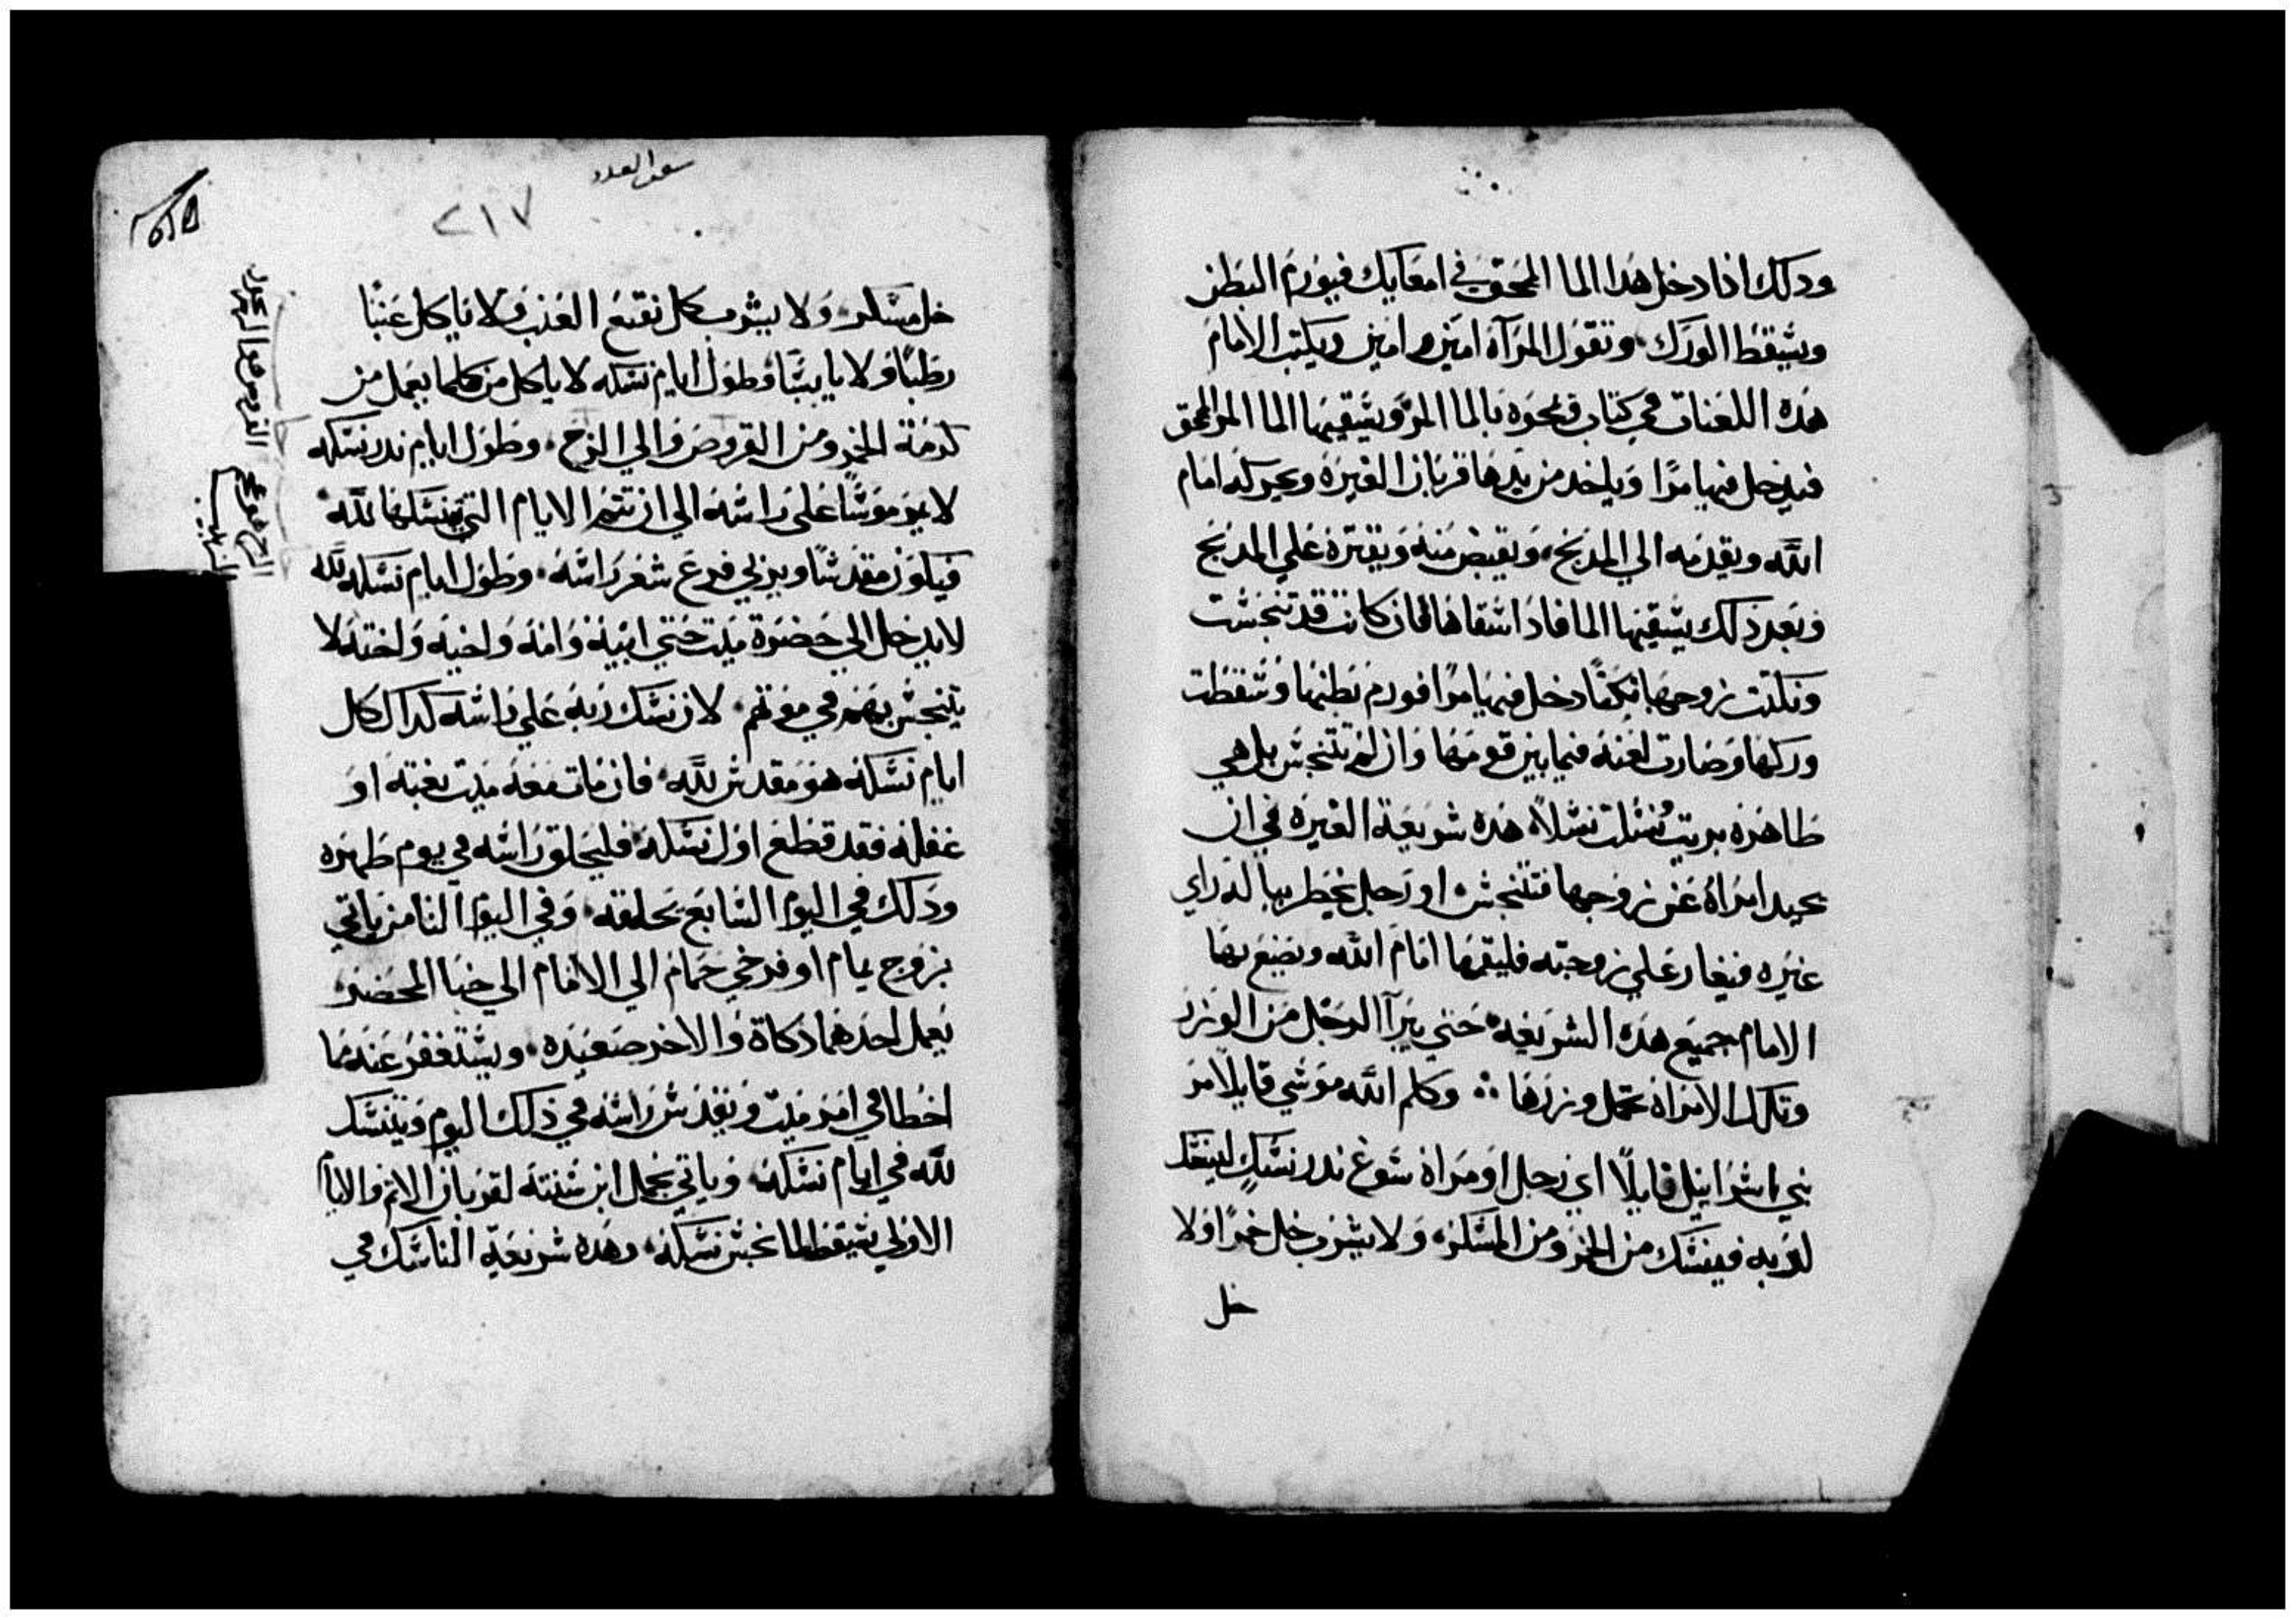 ودلك اذا دخل هدا الما المحق في امعايك فيورم البطن
ويسقط الورك وتقول المرآة امين امين ويكتب الامام
هده اللعنات في كتاب ويمحوه بالما المر ويسقيها الما المر المحق
فيدخل فيها مرًا وياخد من يدها قربان الغيرة ويحركه امام
الله ويقدمه الي المدبح، ويقبض منه ويقتره علي المدبح
وبعد ذلك يسقيها الما فادا اسقاها فان كانت قد تنجست
ونكتت بزوجها نكثًا دخل فيها مرًا فورم بطنها وسقطت
وركها وصارت لعنة فيما بين قومها وان لم تتنجس بل هي
طاهره بريت نسلت نسلاً هده شريعة الغيرة في ان
تحيد امراة عن زوجها فتتنجس او رجل يخطر بباله راي
غيره فيغار علي زوجته فليقمها امام الله ويصنع بها
الامام جميع هده الشريعه حتي يبرآ الرجل من الوزر
وتلك الامراة تحمل وزرها ؞ وكلم الله موسي قايلاً مر
بني اسرائيل قايلاً اي رجل او مراة شوع ندر نسك لينسك
لربه فينسك من الخمر ومن المسكر، ولا يشرب خل خمرًا ولا
خل
سفر العدد
٢١٧
خل مسكر، ولا يشرب كل نقيع العنب ولا ياكل عنبًا
رطبًا ولا يابسًا وطول ايام نسكه لا ياكل من كلما يعمل من
كرمة الخمر ومن القروص والي الزج، وطول ايام ندر نسكه
لا يمر موسًا علي راسه الي ان تتم الايام التي ينسكها لله
فيكون مقدسًا ويربي فرع شعر راسه، وطول ايام نسكه لله
لا يدخل الي حضرة ميت حتي ابيه وامه واخيه واخته لا
يتنجس بهم في موتهم، لان نسك ربه علي راسه كداك كل
ايام نسكه هو مقدس لله، فان مات معه ميت بغتة او
غفلة فقد قطع اول نسكه فليحلق راسه في يوم طهره
ودلك في اليوم السابع يحلقه، وفي اليوم الثامن ياتي
بزوج يمام او فرخي حمام الي الامام الي خبا المحضر
يعمل احدهما دكاة والاخر صعيده، ويستغفر عنه مما
اخطا في امر ميت ويقدس راسه في ذلك اليوم ويتنسك
لله في ايام نسكه، وياتي بحمل ابن سنته لقربان الاثم والايام
الاولي تسقط لما نجس نسكه، وهده شريعة الناسك في